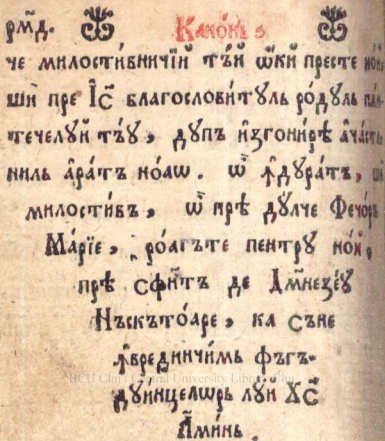 рм҃д. Канѡ́нꙋ ꙅ.
че милостивничїй тъ́й ѿкй престе ной
шѝ пре І҆с҃ благословитꙋль рѻ́дꙋль пѫ́н-
течелꙋй тъ́ꙋ, дꙋпъ и҆згонирѣ а҆часта
ниль а҆ратъ но́аѡ. ѿ ꙟ҆дꙋратъ, ши
милостивъ, ѿ прѣ дꙋ́лче Фечѻръ
Марїе, рѻ́агъте пентрꙋ нѻй,
прѣ сфи҃нтъ де Дм҃незеꙋ
Нъскътѻ́аре, ка съне
ꙟ҆вредничимь фъгъ-
дꙋинцелѡрь лꙋй Хс҃
А҆минь.
BCU Cluj / Central University Library Cluj